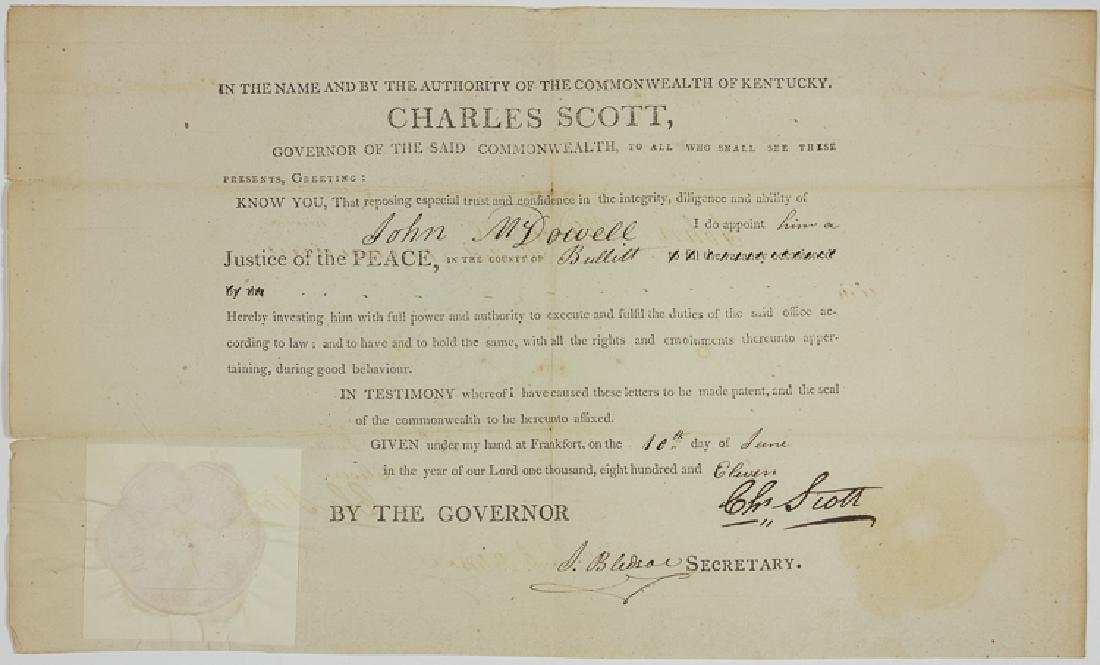 IN THE NAME AND BY THE AUTHORITY OF THE COMMONWEALTH OF KENTUCKY.
CHARLES SCOTT,
GOVERNOR OF THE SAID COMMONWEALTH, TO ALL WHO SHALL SEE THESE
PRESENTS, GREETING:
KNOW YOU, That reposing especial trust and confidence in the integrity, diligence and ability of
John McDowell I do appoint him a
Justice of the PEACE, IN THE COUNTY OF Bullitt
Hereby investing him with full power and authority to execute and fulfil the duties of the said office ac-
cording to law: and to have and to hold the same, with all the rights and emoluments thereunto apper-
taining, during good behaviour.
IN TESTIMONY whereof i have caused these letters to be made patent, and the seal
of the commonwealth to be hereunto affixed.
GIVEN under my hand at Frankfort, on the 10th day of June
in the year of our Lord one thousand, eight hundred and Eleven
Chs Scott
BY THE GOVERNOR
J. Bledsoe SECRETARY.